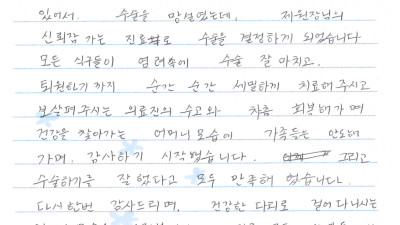 있어서. 수술을 망설였는데, 제원장님의
신뢰감 가는 진료로 수술을 결정하게 되었습니다
모든 식구들이 염려속에 수술 잘 마치고.
퇴원하기 까지 순간 순간 세밀하게 치료해 주시고
보살펴주시는 의료진의 수고와 차츰 회복해가며
건강을 찾아가는 어머니 모습에 가족들은 안도해
가며. 감사하기 시작했습니다. 그리고
수술하기를 잘 했다고 모두 만족해 했습니다.
다시한번 감사드리며, 건강한 다리로 걸어 다니시는